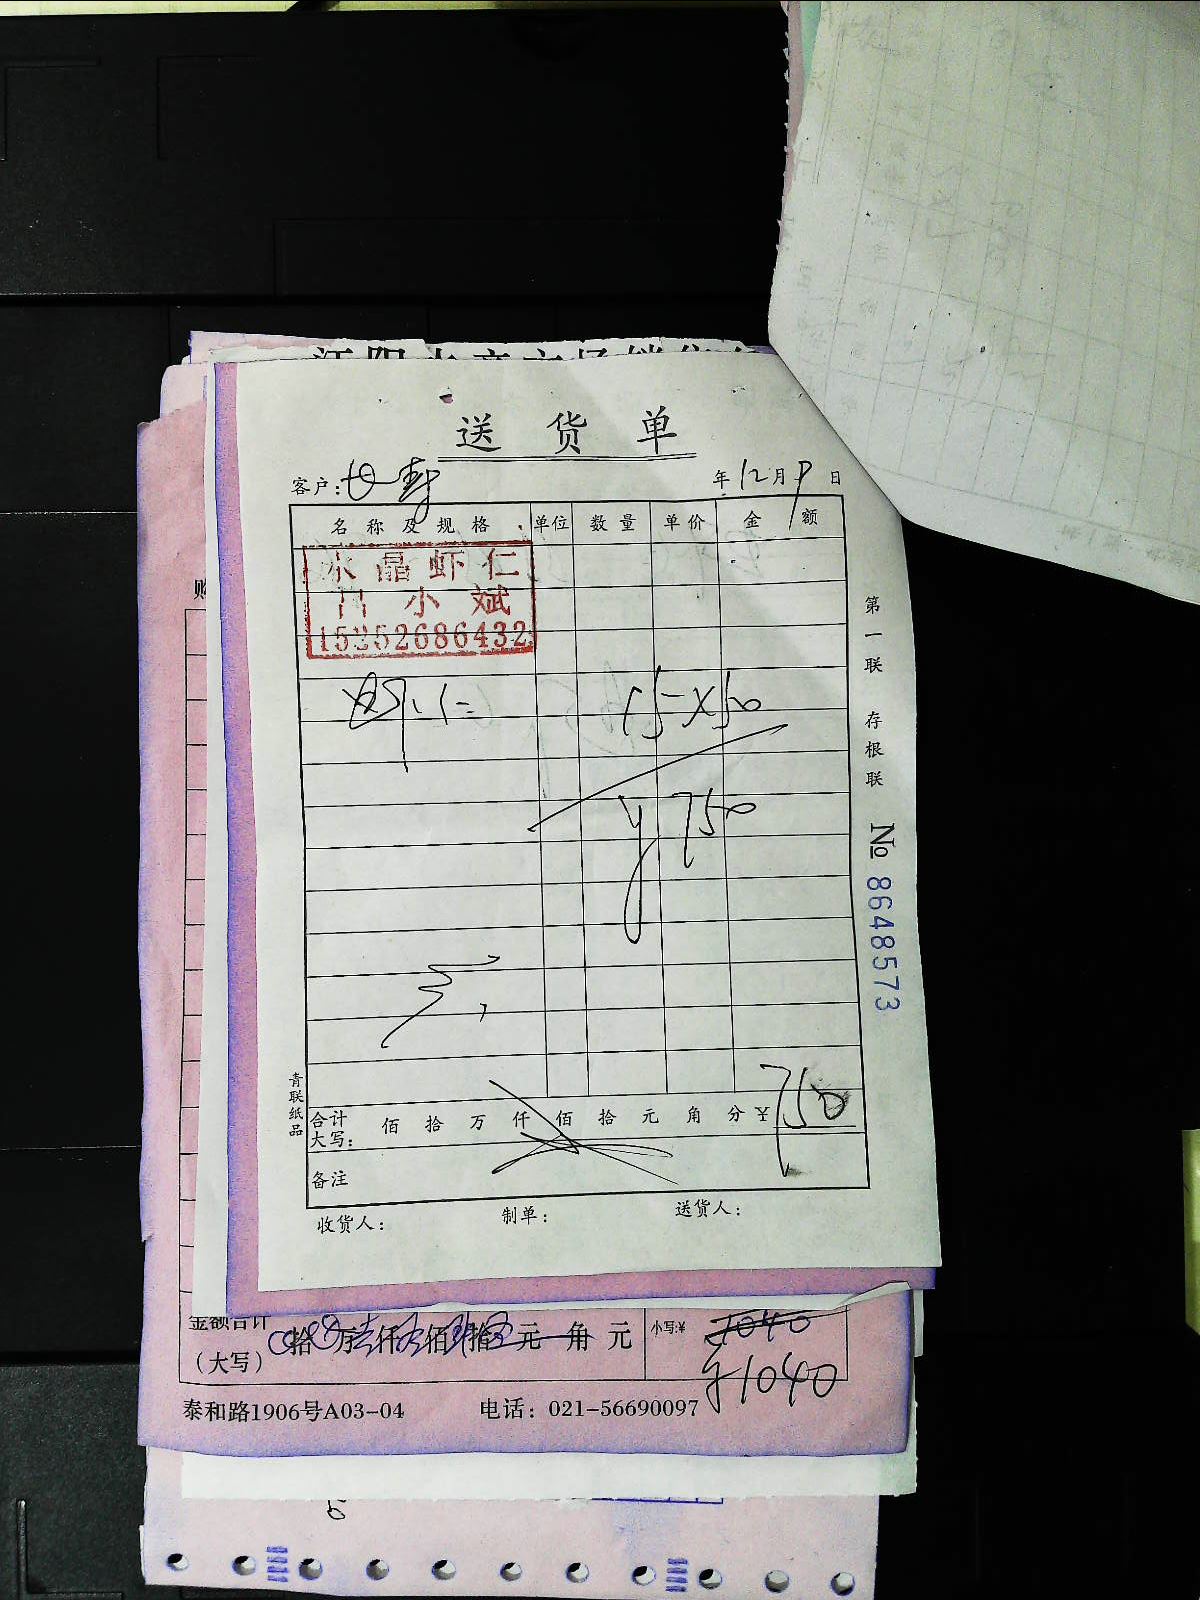 送货单
客户: 年12月9日
名称及规格 单位 数量 单价 金额
水晶虾仁
吕小斌
15252686432
虾仁 15×50
¥750
合计大写: 佰 拾 万 仟 佰 拾 元 角 分 ¥ 750
备注
收货人: 制单: 送货人:
第一联 存根联
№ 8648573
青联纸品
金额合计
(大写) 拾 万 仟 佰 拾 元 角 元 小写:¥ 1040
¥1040
泰和路1906号A03-04 电话: 021-56690097